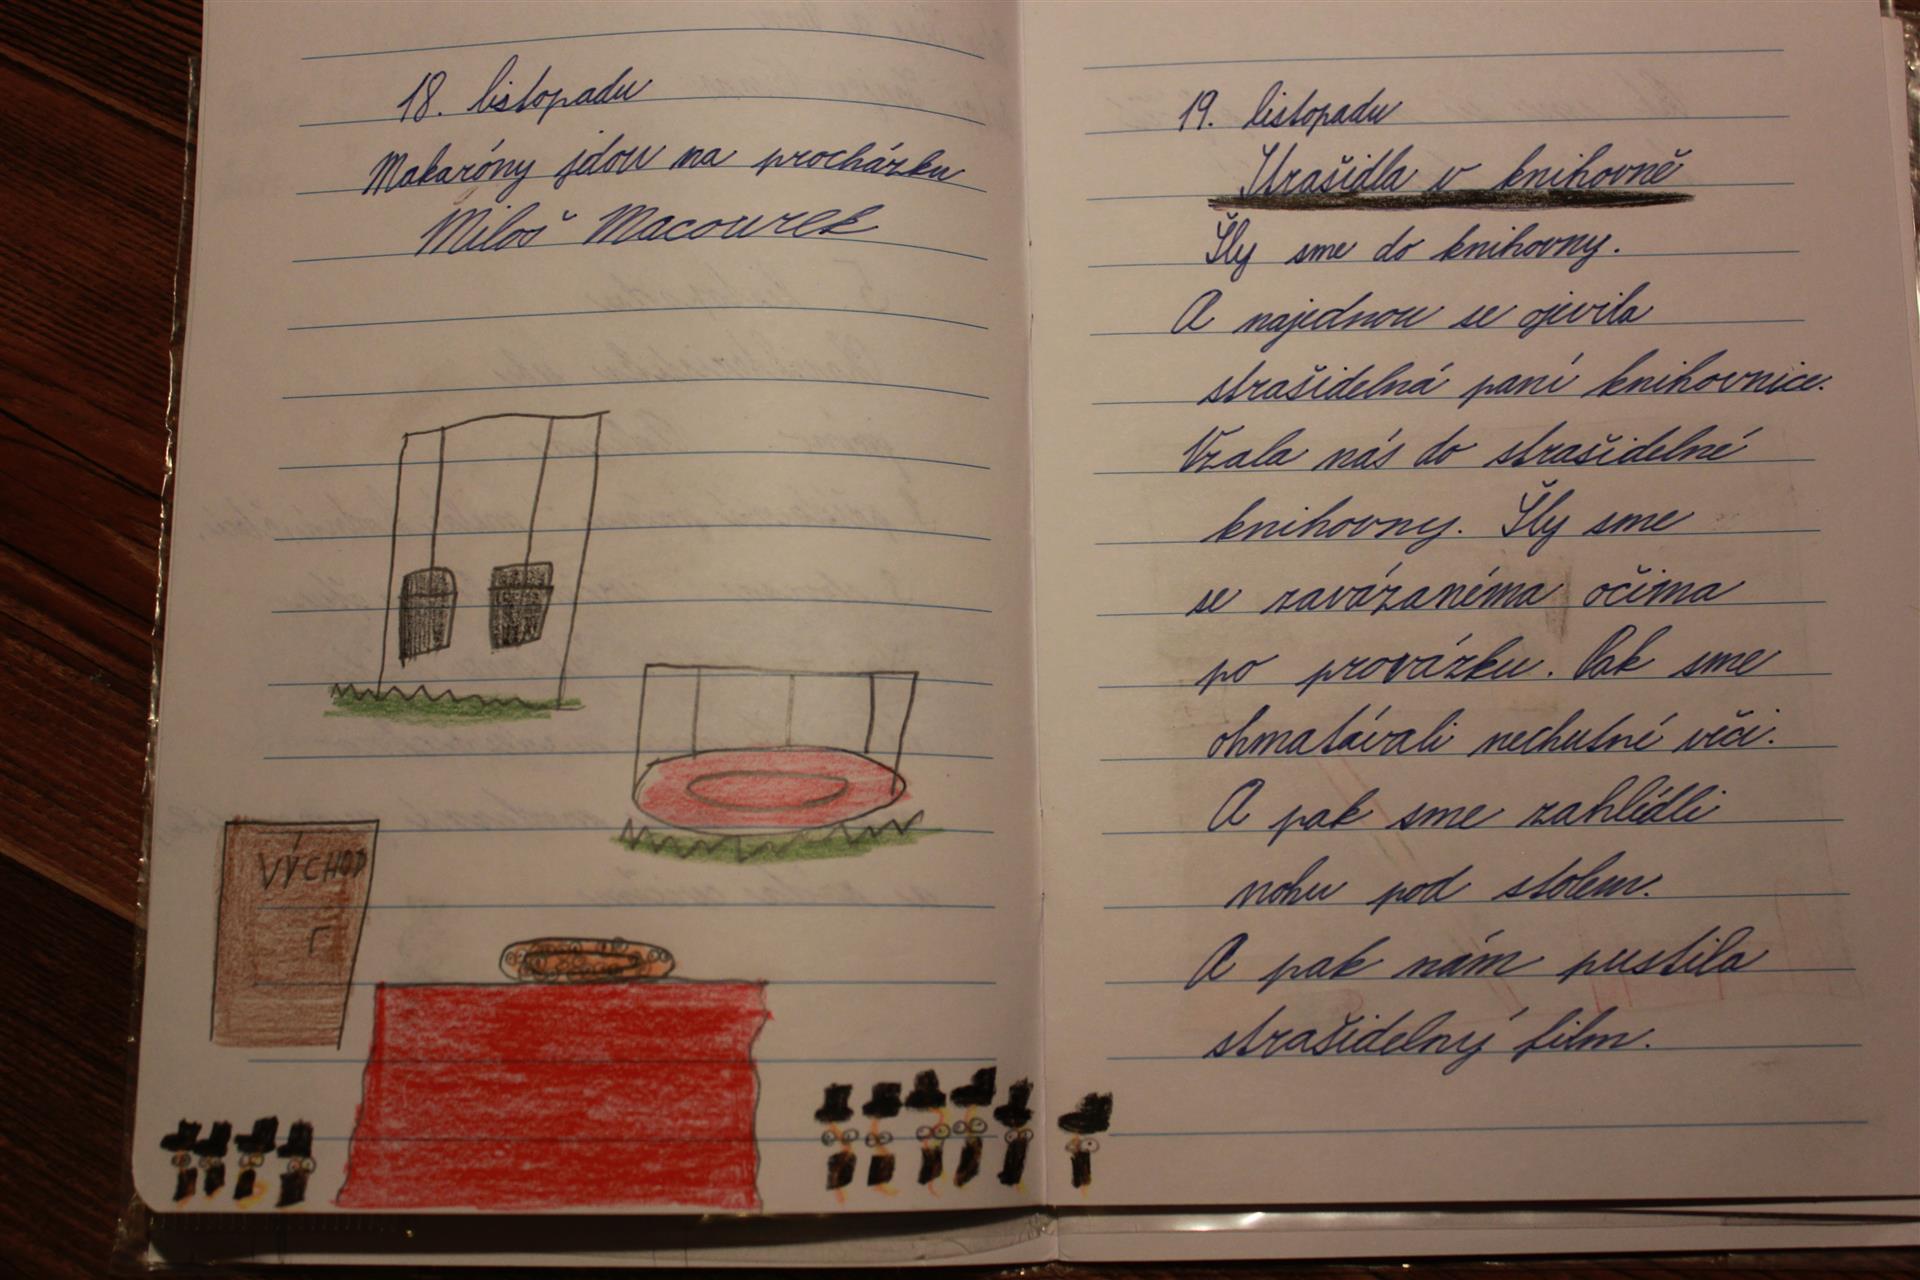 18. listopadu
Makaróny jdou na procházku
Miloš Macourek
VÝCHOD
19. listopadu
Strašidla v knihovně
Šly sme do knihovny.
A najednou se ojevila
strašidelná paní knihovnice.
Vzala nás do strašidelné
knihovny. Šly sme
se zavázanéma očima
po provázku. Pak sme
ohmatávali nechutné věci.
A pak sme zahlídli
nohu pod stolem.
A pak nám pustila
strašidelný film.